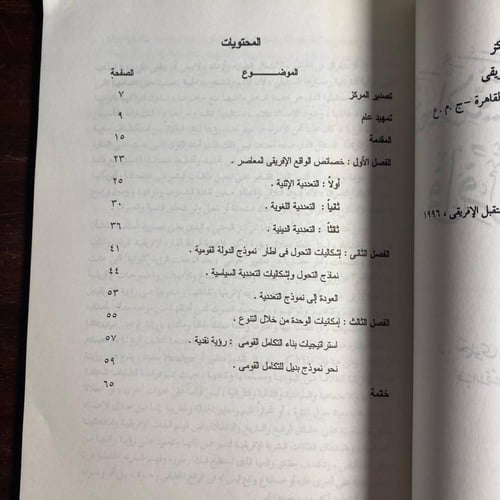 المحتويات
الموضــــــوع الصفحة
تصدير المركز ٧
تمهيد عام ٩
المقدمة ١٥
الفصل الأول : خصائص الواقع الإفريقى المعاصر . ٢٣
أولاً : التعددية الإثنية . ٢٥
ثانياً : التعددية اللغوية . ٣٠
ثالثاً : التعددية الدينية . ٣٦
الفصل الثانى : إشكاليات التحول فى اطار نموذج الدولة القومية . ٤١
نماذج التحول وإشكاليات التعددية السياسية . ٤٤
العودة إلى نموذج التعددية . ٥٣
الفصل الثالث : إمكانيات الوحدة من خلال التنوع . ٥٥
استراتيجيات بناء التكامل القومى : رؤية نقدية . ٥٧
نحو نموذج بديل للتكامل القومى . ٥٩
خاتمة ٦٥
كز
ريقى
لقاهرة -ج .م .ع
ستقبل الإفريقى ، ١٩٩٦